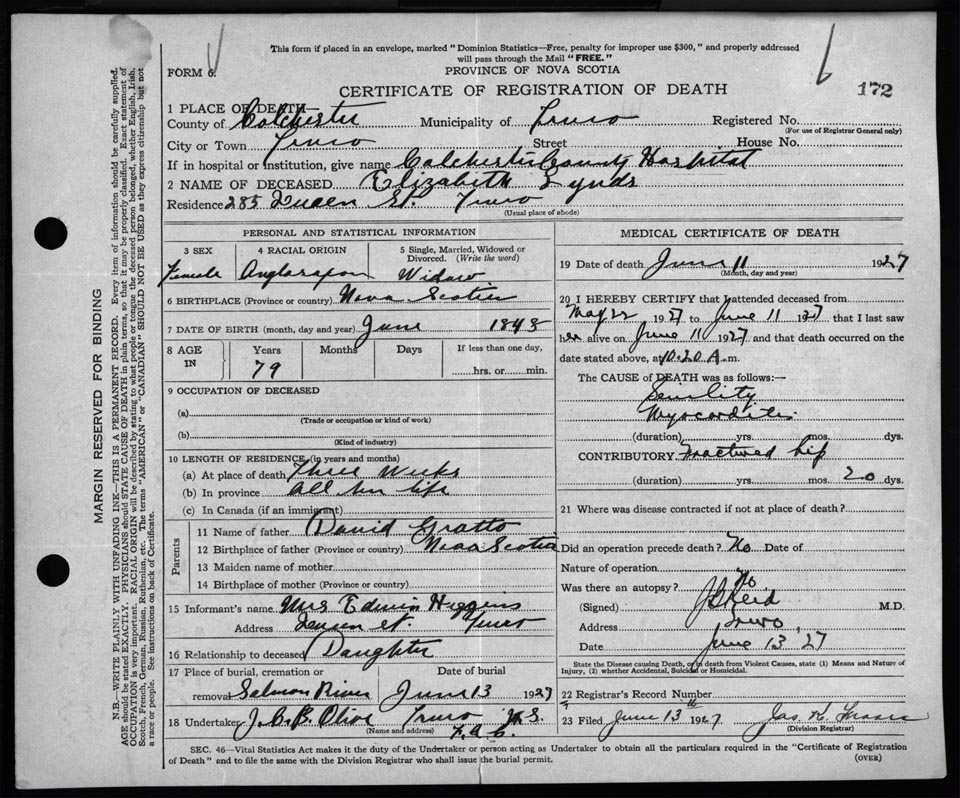 This form if placed in an envelope, marked "Dominion Statistics—Free, penalty for improper use $300," and properly addressed
will pass through the Mail "FREE."
FORM 6.
PROVINCE OF NOVA SCOTIA
CERTIFICATE OF REGISTRATION OF DEATH
172
1 PLACE OF DEATH
County of Colchester Municipality of Truro Registered No.
(For use of Registrar General only)
City or Town Truro Street House No.
If in hospital or institution, give name Colchester County Hospital
2 NAME OF DECEASED Elizabeth Lynds
Residence 285 Queen St. Truro
(Usual place of abode)
PERSONAL AND STATISTICAL INFORMATION
3 SEX 4 RACIAL ORIGIN 5 Single, Married, Widowed or Divorced. (Write the word)
Female Anglosaxon Widow
6 BIRTHPLACE (Province or country) Nova Scotia
7 DATE OF BIRTH (month, day and year) June 1848
8 AGE IN Years Months Days If less than one day,
79 hrs. or min.
9 OCCUPATION OF DECEASED
(a)
(Trade or occupation or kind of work)
(b)
(Kind of industry)
10 LENGTH OF RESIDENCE (in years and months)
(a) At place of death Three Weeks
(b) In province all her life
(c) In Canada (if an immigrant)
Parents
11 Name of father David Gratto
12 Birthplace of father (Province or country) Nova Scotia
13 Maiden name of mother
14 Birthplace of mother (Province or country)
15 Informant's name Mrs Edwin Higgens
Address Queen St. Truro
16 Relationship to deceased Daughter
17 Place of burial, cremation or Date of burial
removal Salmon River June 13 1927
18 Undertaker J.C.B. Olive Truro N.S.
(Name and address)
MEDICAL CERTIFICATE OF DEATH
19 Date of death June 11 1927
(Month, day and year)
20 I HEREBY CERTIFY that I attended deceased from
May 22 1927 to June 11 1927 that I last saw
her alive on June 11 1927 and that death occurred on the
date stated above, at 10.20 A.m.
The CAUSE of DEATH was as follows:—
Senility
Myocarditis
(duration) yrs. mos. dys.
CONTRIBUTORY Fractured hip
(duration) yrs. mos. 20 dys.
21 Where was disease contracted if not at place of death?
Did an operation precede death? No Date of
Nature of operation
Was there an autopsy? No
(Signed) Reid M.D.
Address Truro,
Date June 13 27
State the Disease causing Death, or in death from Violent Causes, state (1) Means and Nature of
Injury, (2) whether Accidental, Suicidal or Homicidal.
22 Registrar's Record Number
23 Filed June 13th 1927 Jas. K. Fraser
(Division Registrar)
SEC. 46—Vital Statistics Act makes it the duty of the Undertaker or person acting as Undertaker to obtain all the particulars required in the "Certificate of Registration
of Death" and to file the same with the Division Registrar who shall issue the burial permit.
(OVER)
MARGIN RESERVED FOR BINDING
N.B.—WRITE PLAINLY WITH UNFADING INK—THIS IS A PERMANENT RECORD. Every item of information should be carefully supplied.
AGE should be stated EXACTLY. PHYSICIANS should STATE CAUSE OF DEATH in plain terms, so that it may be properly classified. Exact statement of
OCCUPATION is very important. RACIAL ORIGIN will be described by stating to what people or tongue the deceased person belonged, whether English, Irish,
Scotch, French, German, Russian, Ruthenian, etc. The terms "AMERICAN" or "CANADIAN" SHOULD NOT BE USED as they express citizenship but not
a race or people. See instructions on back of Certificate.